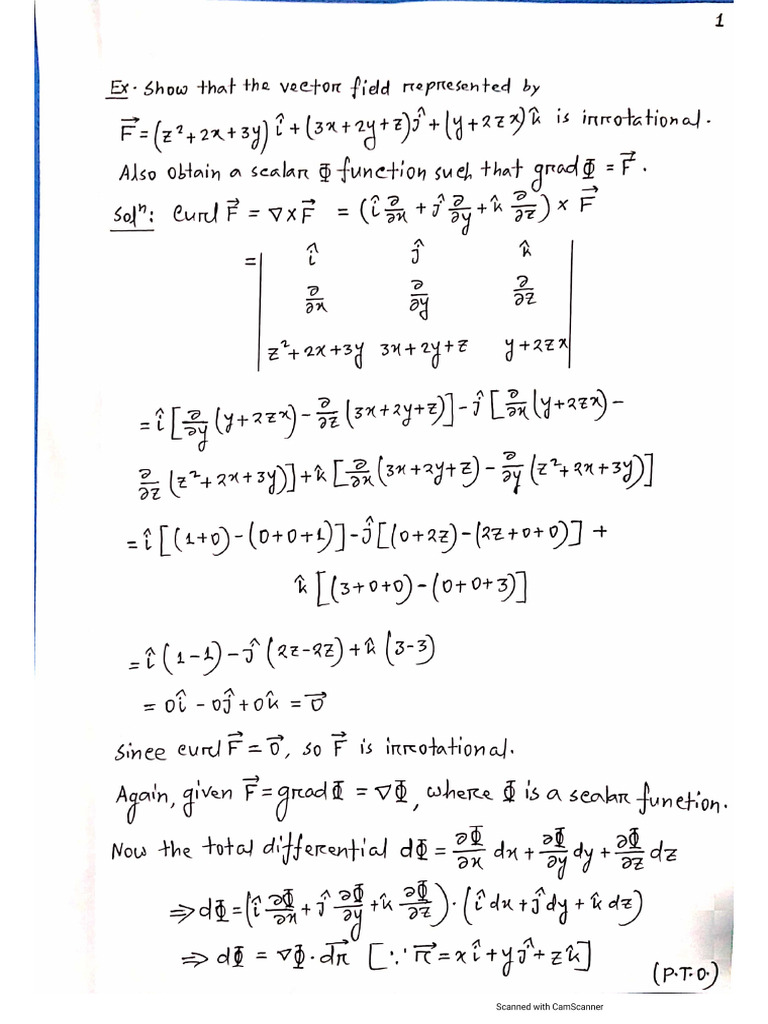 1
Ex. Show that the vector field represented by
F⃗ = (z²+2x+3y) î + (3x+2y+z) ĵ + (y+2zx) k̂ is irrotational.
Also obtain a scalar Φ function such that grad Φ = F⃗.
Solⁿ: Curl F⃗ = ∇×F⃗ = (î ∂/∂x + ĵ ∂/∂y + k̂ ∂/∂z) × F⃗
= | î ĵ k̂ |
| ∂/∂x ∂/∂y ∂/∂z |
| z²+2x+3y 3x+2y+z y+2zx |
= î [∂/∂y (y+2zx) - ∂/∂z (3x+2y+z)] - ĵ [∂/∂x (y+2zx) -
∂/∂z (z²+2x+3y)] + k̂ [∂/∂x (3x+2y+z) - ∂/∂y (z²+2x+3y)]
= î [(1+0) - (0+0+1)] - ĵ [(0+2z) - (2z+0+0)] +
k̂ [(3+0+0) - (0+0+3)]
= î (1-1) - ĵ (2z-2z) + k̂ (3-3)
= 0î - 0ĵ + 0k̂ = 0⃗
Since curl F⃗ = 0⃗, so F⃗ is irrotational.
Again, given F⃗ = grad Φ = ∇Φ, where Φ is a scalar function.
Now the total differential dΦ = ∂Φ/∂x dx + ∂Φ/∂y dy + ∂Φ/∂z dz
⇒ dΦ = (î ∂Φ/∂x + ĵ ∂Φ/∂y + k̂ ∂Φ/∂z) · (î dx + ĵ dy + k̂ dz)
⇒ dΦ = ∇Φ · dr⃗ [∵ r⃗ = x î + y ĵ + z k̂]
(P.T.O.)
Scanned with CamScanner